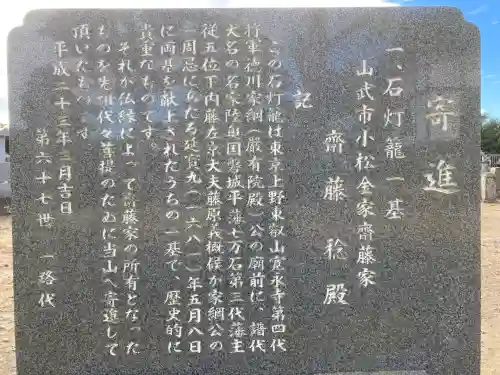 寄進
一、石灯籠一基
山武市小松金家齋藤家
齋藤稔殿
記
この石灯籠は東京上野東叡山寛永寺第四代
将軍徳川家綱（厳有院殿）公の廟前に、譜代
大名の名家陸奥国磐城平藩七万石第三代藩主
従五位下内藤左京大夫藤原義概候が家綱公の
一周忌にあたる延寛九（一六八一）年五月八日
に両基を献上されたうちの一基で、歴史的に
貴重なものです。
それが仏縁に よって齋藤家の所有となった
ものを先祖代々菩提のために当山へ寄進して
頂いたものです。
平成二十三年三月吉日
第六十七世 一路代